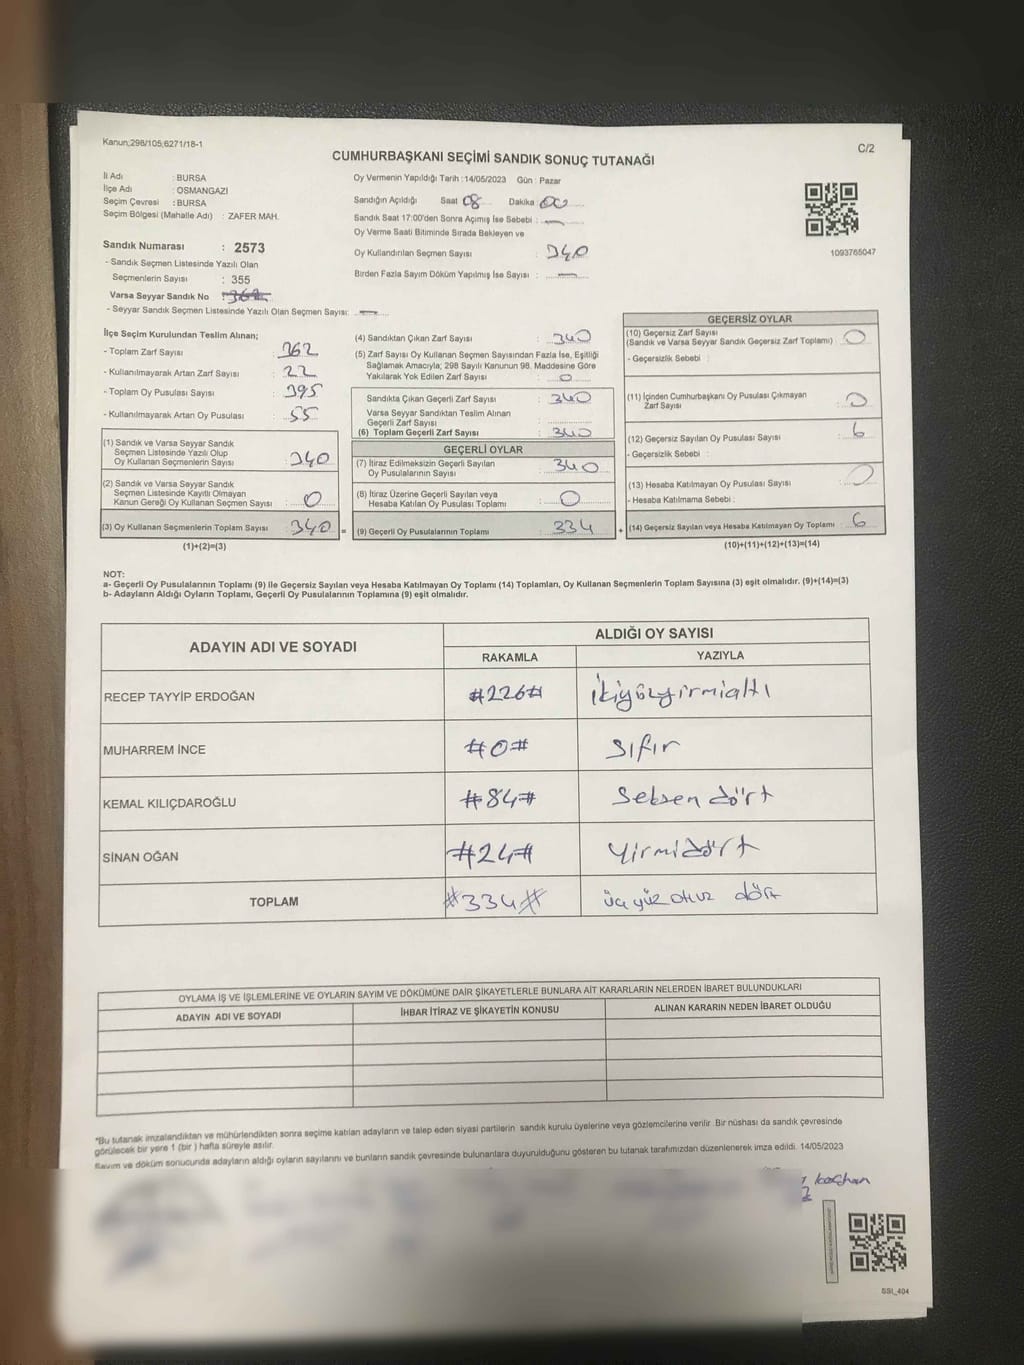 Kanun;298/105,6271/18-1
C/2
CUMHURBAŞKANI SEÇİMİ SANDIK SONUÇ TUTANAĞI
İl Adı : BURSA
İlçe Adı : OSMANGAZİ
Seçim Çevresi : BURSA
Seçim Bölgesi (Mahalle Adı) : ZAFER MAH.
Sandık Numarası : 2573
- Sandık Seçmen Listesinde Yazılı Olan
Seçmenlerin Sayısı : 355
Varsa Seyyar Sandık No :
- Seyyar Sandık Seçmen Listesinde Yazılı Olan Seçmen Sayısı:
Oy Vermenin Yapıldığı Tarih :14/05/2023 Gün : Pazar
Sandığın Açıldığı Saat 08 Dakika 00
Sandık Saat 17:00'den Sonra Açımış İse Sebebi :
Oy Verme Saati Bitiminde Sırada Bekleyen ve
Oy Kullandırılan Seçmen Sayısı : 340
Birden Fazla Sayım Döküm Yapılmış İse Sayısı :
1093765047
İlçe Seçim Kurulundan Teslim Alınan;
- Toplam Zarf Sayısı : 362
- Kullanılmayarak Artan Zarf Sayısı : 22
- Toplam Oy Pusulası Sayısı : 395
- Kullanılmayarak Artan Oy Pusulası : 55
(1) Sandık ve Varsa Seyyar Sandık
Seçmen Listesinde Yazılı Olup
Oy Kullanan Seçmenlerin Sayısı : 340
(2) Sandık ve Varsa Seyyar Sandık
Seçmen Listesinde Kayıtlı Olmayan
Kanun Gereği Oy Kullanan Seçmen Sayısı : 0
(3) Oy Kullanan Seçmenlerin Toplam Sayısı : 340 =
(1)+(2)=(3)
(4) Sandıktan Çıkan Zarf Sayısı : 340
(5) Zarf Sayısı Oy Kullanan Seçmen Sayısından Fazla İse, Eşitliği
Sağlamak Amacıyla; 298 Sayılı Kanunun 98. Maddesine Göre
Yakılarak Yok Edilen Zarf Sayısı : 0
Sandıkta Çıkan Geçerli Zarf Sayısı : 340
Varsa Seyyar Sandıktan Teslim Alınan
Geçerli Zarf Sayısı :
(6) Toplam Geçerli Zarf Sayısı : 340
GEÇERLİ OYLAR
(7) İtiraz Edilmeksizin Geçerli Sayılan
Oy Pusulalarının Sayısı : 340
(8) İtiraz Üzerine Geçerli Sayılan veya
Hesaba Katılan Oy Pusulası Toplamı : 0
(9) Geçerli Oy Pusulalarının Toplamı : 334 +
GEÇERSİZ OYLAR
(10) Geçersiz Zarf Sayısı
(Sandık ve Varsa Seyyar Sandık Geçersiz Zarf Toplamı) : 0
- Geçersizlik Sebebi :
(11) İçinden Cumhurbaşkanı Oy Pusulası Çıkmayan
Zarf Sayısı : 0
(12) Geçersiz Sayılan Oy Pusulası Sayısı : 6
- Geçersizlik Sebebi :
(13) Hesaba Katılmayan Oy Pusulası Sayısı : 0
- Hesaba Katılmama Sebebi :
(14) Geçersiz Sayılan veya Hesaba Katılmayan Oy Toplamı : 6
(10)+(11)+(12)+(13)=(14)
NOT:
a- Geçerli Oy Pusulalarının Toplamı (9) ile Geçersiz Sayılan veya Hesaba Katılmayan Oy Toplamı (14) Toplamları, Oy Kullanan Seçmenlerin Toplam Sayısına (3) eşit olmalıdır. (9)+(14)=(3)
b- Adayların Aldığı Oyların Toplamı, Geçerli Oy Pusulalarının Toplamına (9) eşit olmalıdır.
ADAYIN ADI VE SOYADI
ALDIĞI OY SAYISI
RAKAMLA YAZIYLA
RECEP TAYYİP ERDOĞAN #226# ikiyüzyirmialtı
MUHARREM İNCE #0# Sıfır
KEMAL KILIÇDAROĞLU #84# Seksen dört
SİNAN OĞAN #24# Yirmidört
TOPLAM #334# üçyüz otuz dört
OYLAMA İŞ VE İŞLEMLERİNE VE OYLARIN SAYIM VE DÖKÜMÜNE DAİR ŞİKAYETLERLE BUNLARA AİT KARARLARIN NELERDEN İBARET BULUNDUKLARI
ADAYIN ADI VE SOYADI İHBAR İTİRAZ VE ŞİKAYETİN KONUSU ALINAN KARARIN NEDEN İBARET OLDUĞU
*Bu tutanak imzalandıktan ve mühürlendikten sonra seçime katılan adayların ve talep eden siyasi partilerin sandık kurulu üyelerine veya gözlemcilerine verilir. Bir nüshası da sandık çevresinde
görülecek bir yere 1 (bir ) hafta süreyle asılır.
Sayım ve döküm sonucunda adayların aldığı oyların sayılarını ve bunların sandık çevresinde bulunanlara duyurulduğunu gösteren bu tutanak tarafımızdan düzenlenerek imza edildi. 14/05/2023
SSI_404